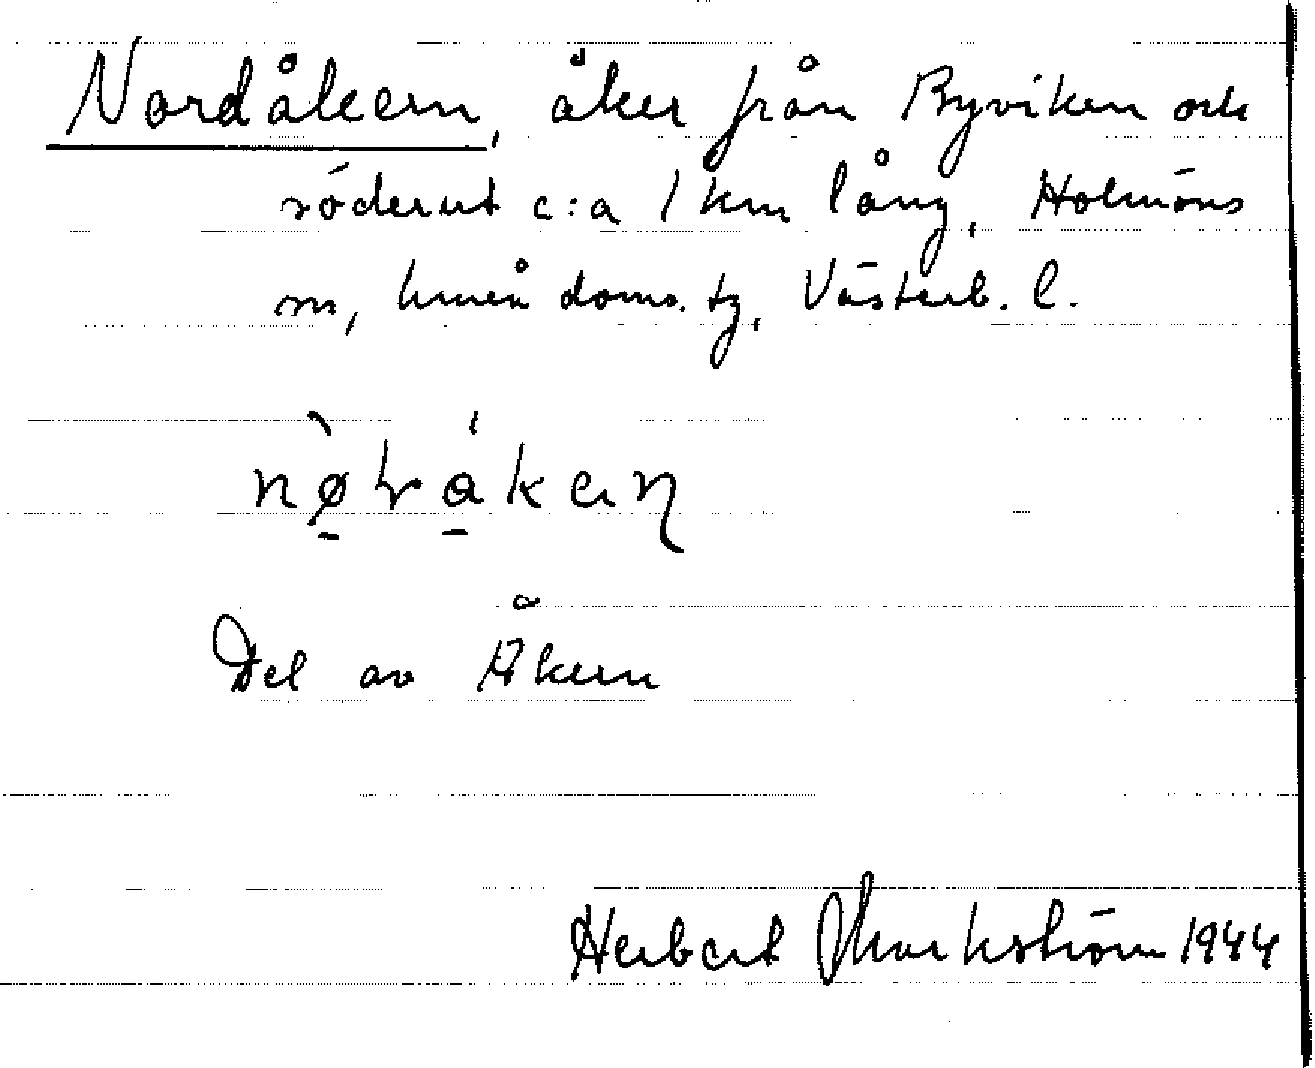 Nordåkern, åker från Byviken och
söderut c:a 1 km lång, Holmöns
sn, Umeå doms. tg, Västerb. l.
Del av Åkern
Herbert Markström 1944